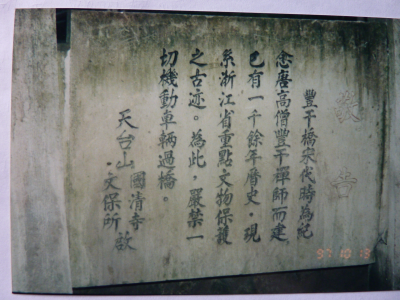 豐干橋宋代時為紀
念唐高僧豐干禪師而建
已有一千餘年曆史，現
系浙江省重點文物保護
之古迹。為此，嚴禁一
切機動車輛過橋。
天台山國清寺
文保所